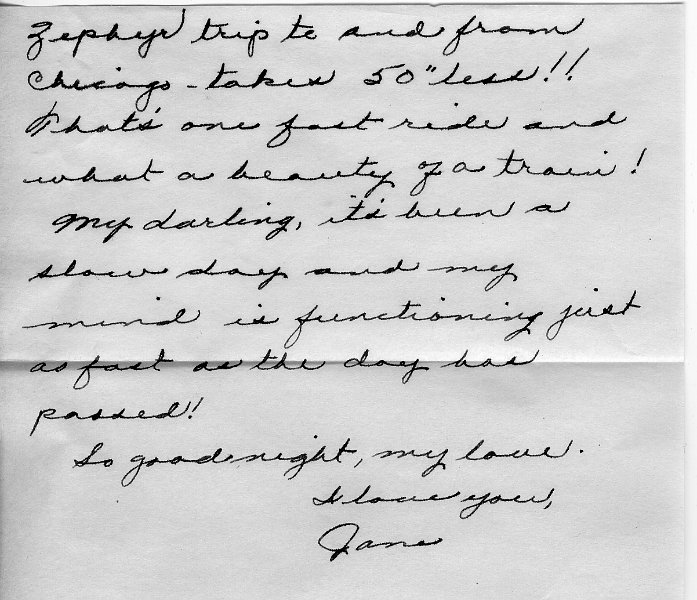 Zephyr trip to and from
Chicago - takes 50" less!!
That's one fast ride and
what a beauty of a train!
My darling, it's been a
slow day and my
mind is functioning just
as fast as the day has
passed!
So good night, my love.
I love you,
Jane